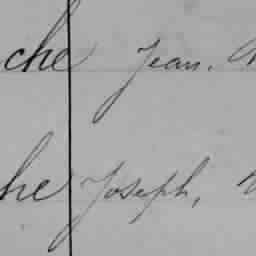 che Jean.
he Joseph,